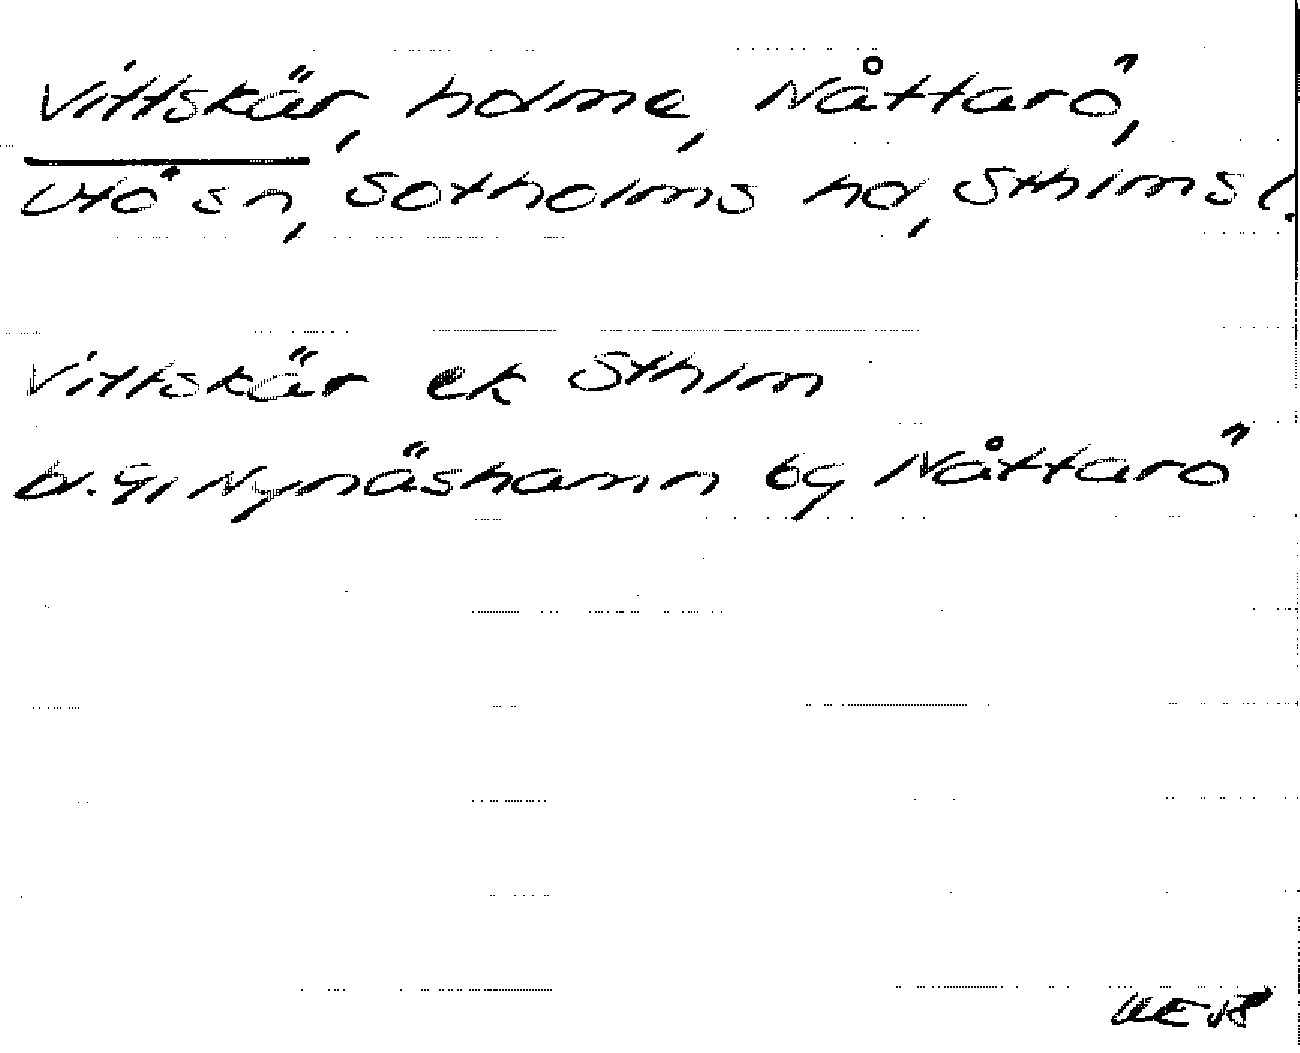 Vittskär, holme, Nåttarö,
Utö sn, Sotholms hd, Sthlms l.
Vittskär ek Sthlm
Nynäshamn by Nåttarö